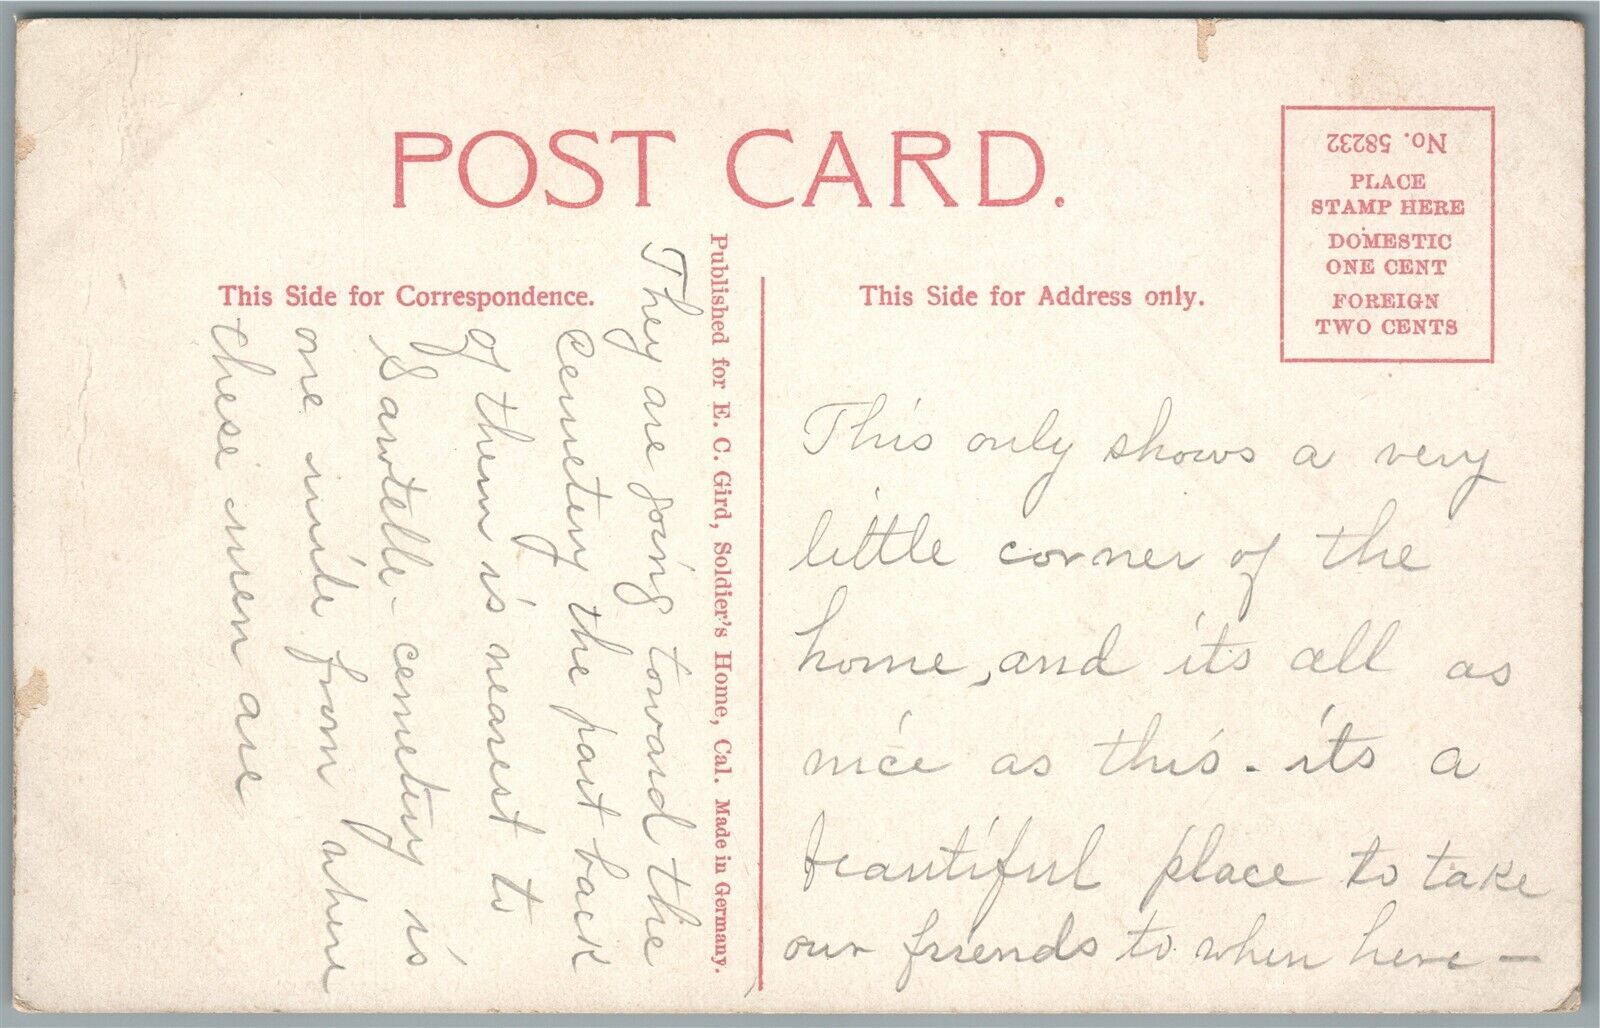 POST CARD.
No. 58232
PLACE
STAMP HERE
DOMESTIC
ONE CENT
FOREIGN
TWO CENTS
This Side for Correspondence.
This Side for Address only.
Published for E. C. Gird, Soldier's Home, Cal. Made in Germany.
They are going toward the
cemetery the part back
of them is nearest to
Sawtelle - cemetery is
one mile from where
these men are
This only shows a very
little corner of the
home, and its all as
nice as this. its a
beautiful place to take
our friends to when here -